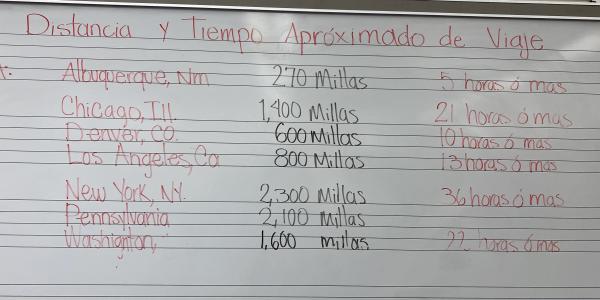 Distancia y Tiempo Apróximado de Viaje
Albuquerque, Nm 270 Millas 5 horas ó mas
Chicago, Ill. 1,400 Millas 21 horas ó mas
Denver, CO. 600 Millas 10 horas ó mas
Los Angeles, Ca 800 Millas 13 horas ó mas
New York, NY. 2,300 Millas 36 horas ó mas
Pennsylvania 2,100 Millas
Washington, 1,600 millas horas ó mas